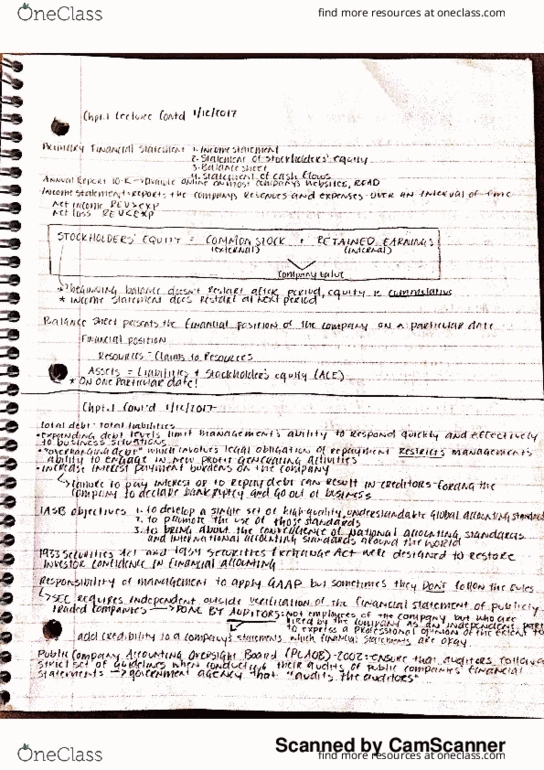 OneClass
find more resources at oneclass.com
Chpt.1 Lecture Cont'd 1/12/2017
Primary Financial Statement 1. Income statement
2. Statement of Stockholders' equity
3. Balance sheet
4. Statement of cash flows
Annual Report 10-K → online on most company's websites, READ
Income Statement: reports the company's revenues and expenses over an interval of time
net income REV>EXP
net loss REV<EXP
STOCKHOLDERS' EQUITY = COMMON STOCK + RETAINED EARNINGS
(external) (internal)
company value
* beginning balance doesn't restart after period, equity is cumulative
* income statement does restart at next period
Balance sheet presents the financial position of the company on a particular date
Financial position
Resources = Claims to Resources
Assets = Liabilities + Stockholders equity (ALE)
* ON ONE particular date!
Chpt.1 Cont'd 1/12/2017
total debt: total liabilities
• expanding debt levels limit management's ability to respond quickly and effectively
to business situations
• "overhanging debt" which involves legal obligation of repayment restricts management's
ability to engage in new profit generating activities
• increase interest payment burdens on the company
↳ failure to pay interest or to repay debt can result in creditors forcing the
company to declare bankruptcy and go out of business
IASB objectives 1. to develop a single set of high quality, understandable global accounting standards
2. to promote the use of those standards
3. to bring about the convergence of national accounting standards
and international accounting standards around the world
1933 Securities Act and 1934 Securities Exchange Act were designed to restore
investor confidence in financial accounting
Responsibility of management to apply GAAP but sometimes they DON'T follow the rules
↳ SEC requires independent outside verification of the financial statement of publicly
traded companies → DONE BY AUDITORS: not employees of the company but who are
hired by the company as an independent party
to express a professional opinion of the extent to
add credibility to a company's statements which financial statements are okay.
Public Company Accounting Oversight Board (PCAOB)-2002: ensure that auditors follow a
strict set of guidelines when conducting their audits of public companies' financial
statements → government agency that "audits the auditors"
Scanned by CamScanner
OneClass
find more resources at oneclass.com